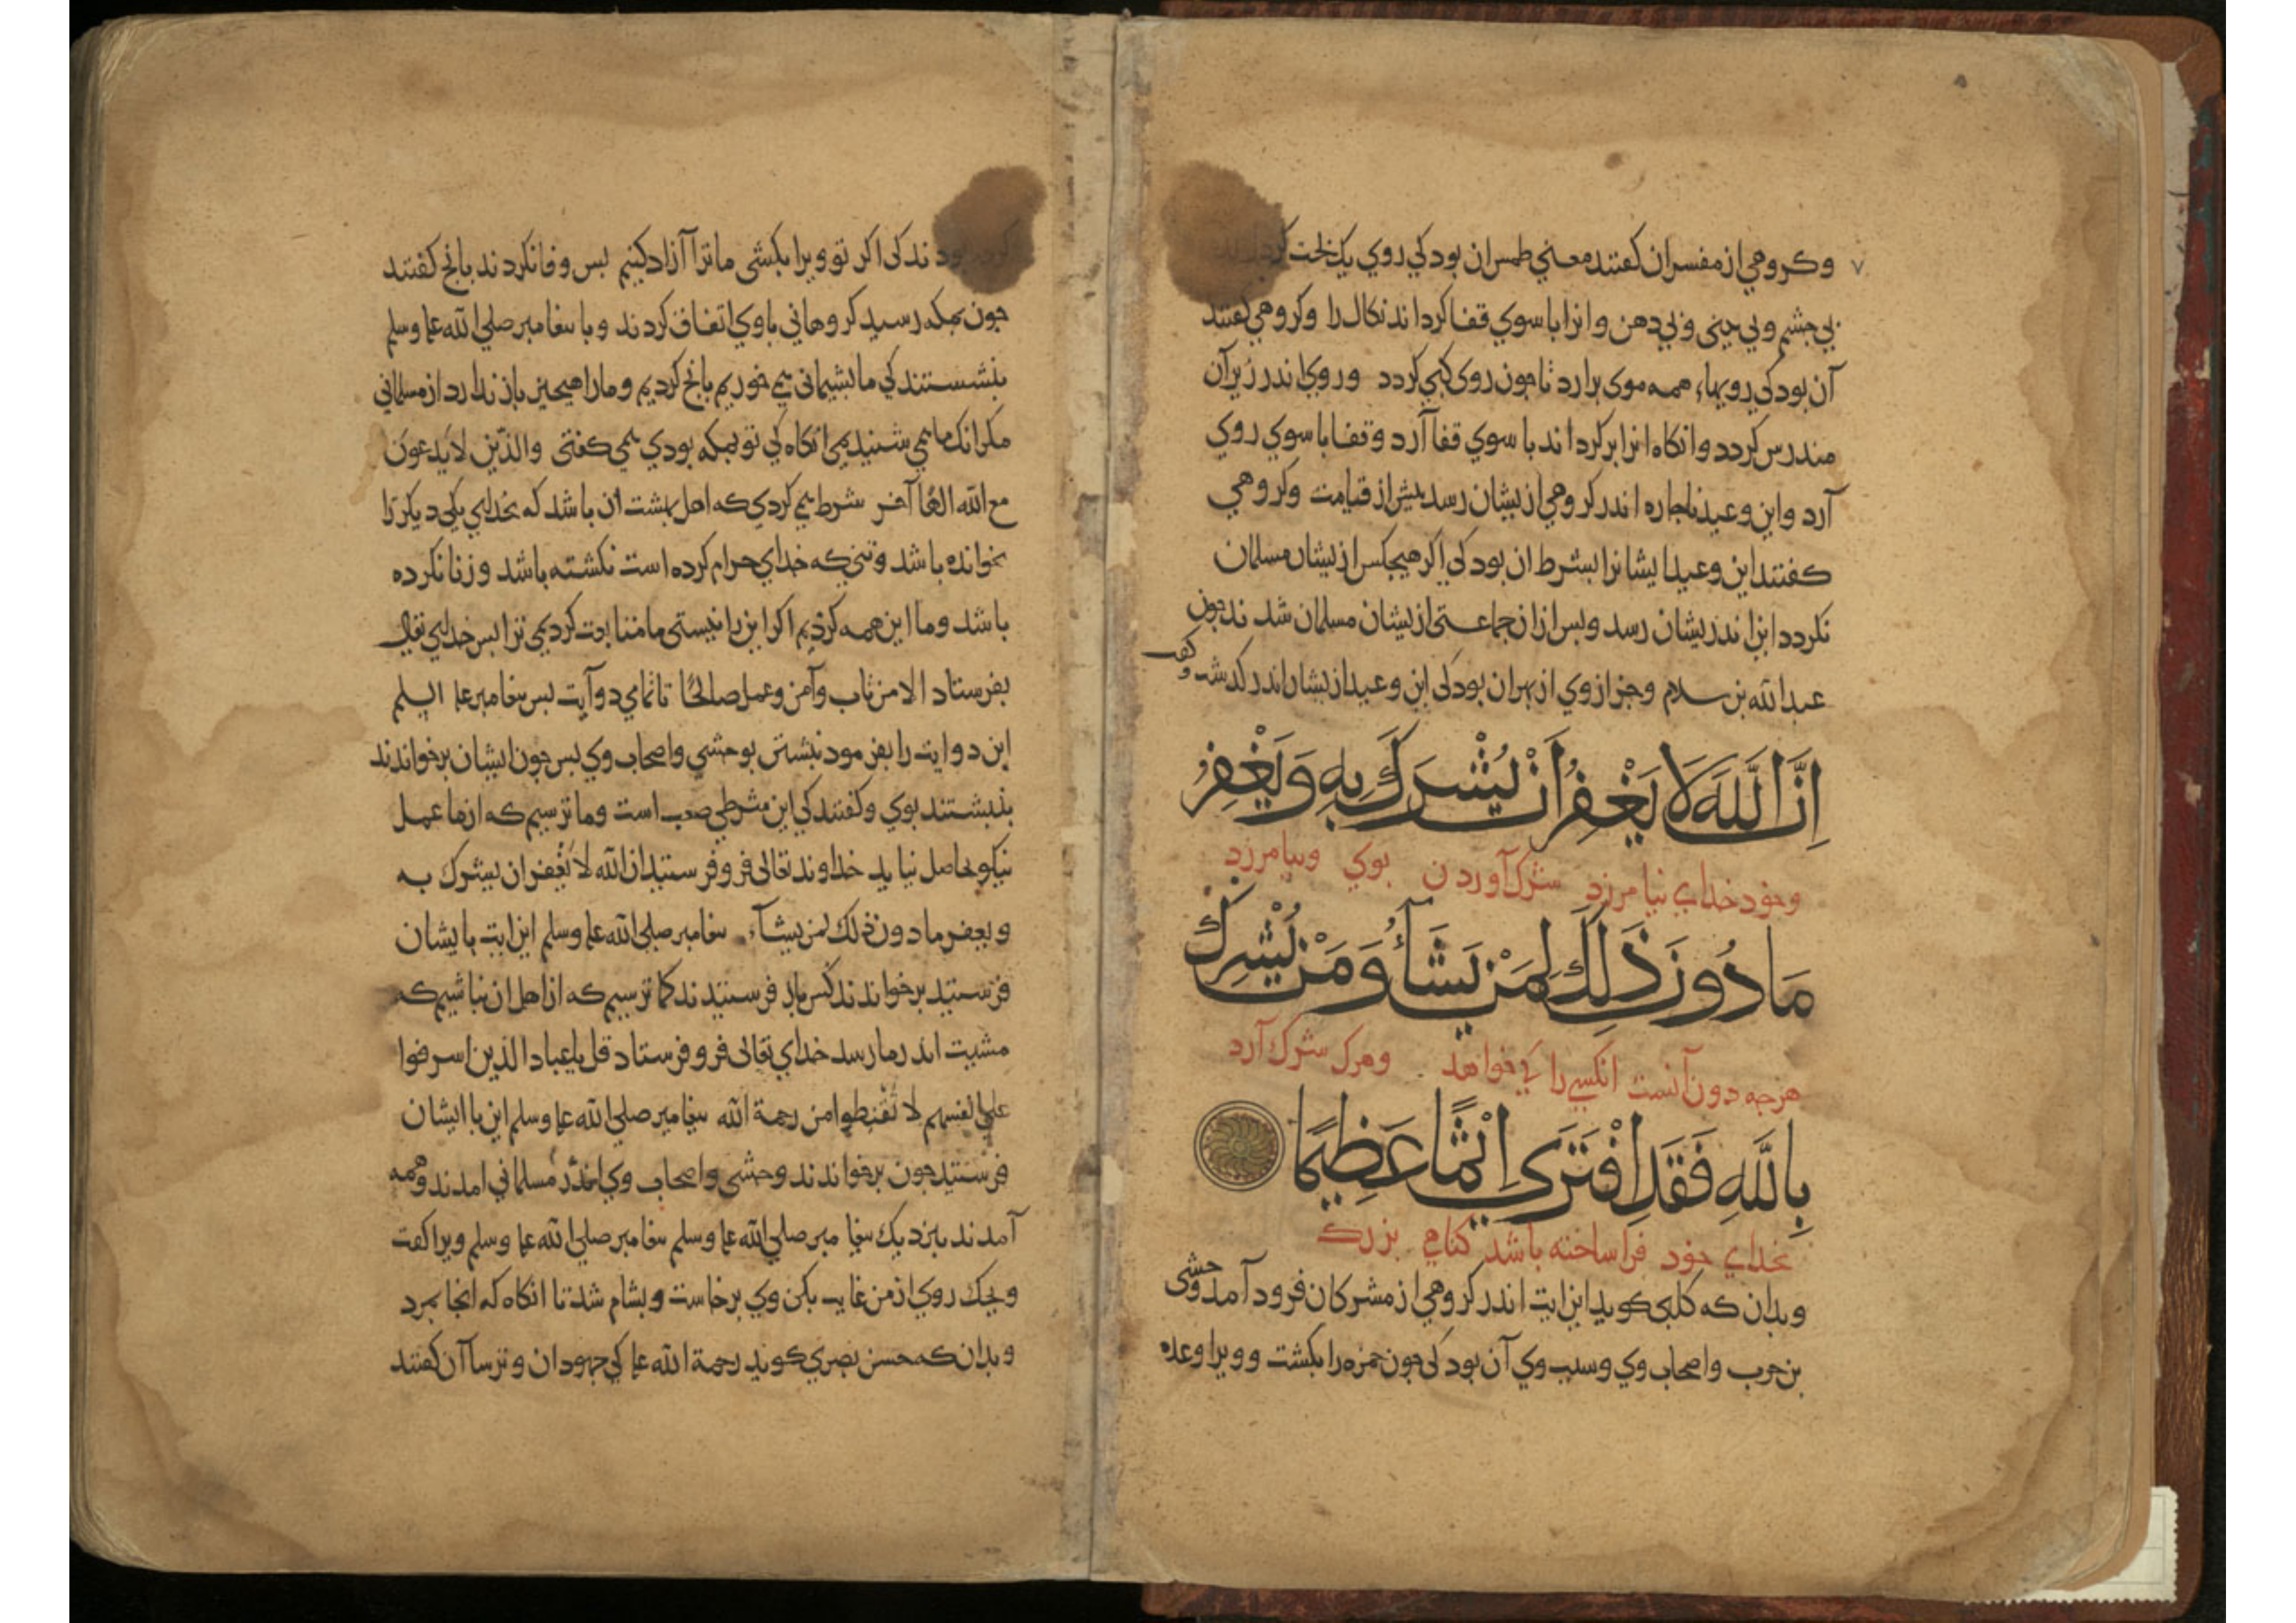 وکروهی از مفسران کفتند معنی طمس ان بود کی روی یک لخت کرداند
بی جشم و بی بینی و بی دهن و انرا با سوی قفا کرداند نکال را وکروهی کفتند
آن بود کی رویها، همه موی برارد تا جون روی کبی کردد و روی اندر زیر آن
مندرس کردد وانکاه انرا بر کرداند با سوی قفا آرد وقفا با سوی روی
آرد و این وعید ناجاره اندر کروهی از یشان رسد بیش از قیامت وکروهی
کفتند این وعید ایشانرا بشرط ان بود کی اکر هیجکس از یشان مسلمان
نکردد این اندر یشان رسد و بس ازان جماعتی از یشان مسلمان شدند جون
عبدالله بن سلام وجز از وی از بهر ان بود کی این وعید از یشان اندر کدشت
اِنَّ اللَّهَ لَا يَغْفِرُ اَنْ يُشْرَكَ بِهِ وَيَغْفِرُ
وخود خدای نیامرزد شرک آوردن بوی وبیامرزد
مَا دُونَ ذَلِكَ لِمَنْ يَشَآءُ وَمَنْ يُشْرِكْ
هرجه دون آنست انکسی را کی خواهد . وهرک شرک آرد
بِاللَّهِ فَقَدِ افْتَرَى اِثْمًا عَظِيمًا
بخدای خود فراساخته باشد کناهی بزرک
وبدان که کلبی کوید این ایت اندر کروهی از مشرکان فرود آمد وحشی
بن حرب واصحاب وی وسبب وی آن بود کی جون حمزه را بکشت و ویرا وعده
کرده بودند کی اکر تو ویرا بکشی ما ترا آزاد کنیم بس وفا نکردند بانج کفتند
جون بمکه رسید کروهانی با وی اتفاق کردند و با بیغامبر صلی الله علیه وسلم
بنشستند کی ما بشیمانی می خوریم بانج کردیم وما را هیجیز باز ندارد از مسلمانی
مکر انک ما می شنیدیمی انکاه کی تو بمکه بودی می کفتی والذین لا یدعون
مع الله الهًا آخر شرط می کردی که اهل بهشت ان باشد که بخدای یکی دیکر را
نخوانده باشد وتنی که خدای حرام کرده است نکشته باشد و زنا نکرده
باشد وما این همه کردیم اکر این را نیستی ما متابعت کردیمی ترا بس خدای تعالی
بفرستاد الا من تاب وآمن وعمل صالحًا تا تمامی دو آیت بس بیغامبر علیه السلم
این دو ایت را بفرمود نبشتن بوحشی واصحاب وی بس جون ایشان برخواندند
بنبشتند بوی وکفتند کی این شرطی صعب است وما ترسیم که از ما عمل
نیکو حاصل نیاید خداوند تعالی فرو فرستید ان الله لا یغفر ان یشرک به
ویغفر ما دون ذلک لمن یشآء بیغامبر صلی الله علیه وسلم این ایت بایشان
فرستید برخواندند کس باز فرستیدند کما ترسیم که از اهل ان نباشیم که
مشیت اندر ما رسد خدای تعالی فرو فرستاد قل یا عباد الذین اسرفوا
علی انفسهم لا تقنطوا من رحمة الله بیغامبر صلی الله علیه وسلم این با ایشان
فرستید جون برخواندند وحشی واصحاب وی اندر مسلمانی امدند وهمه
آمدند بنزدیک بیغامبر صلی الله علیه وسلم بیغامبر صلی الله علیه وسلم ویرا کفت
ویحک روی از من غایب بکن وی برخاست وبشام شد تا انکاه که انجا بمرد
وبدان که حسن بصری کوید رحمة الله علیه کی جهودان و ترساآن کفتند